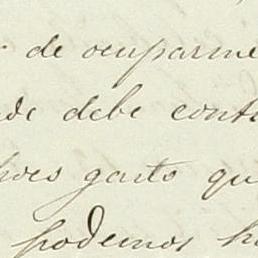 de ocuparme
debe cont
gasto qu
podemos